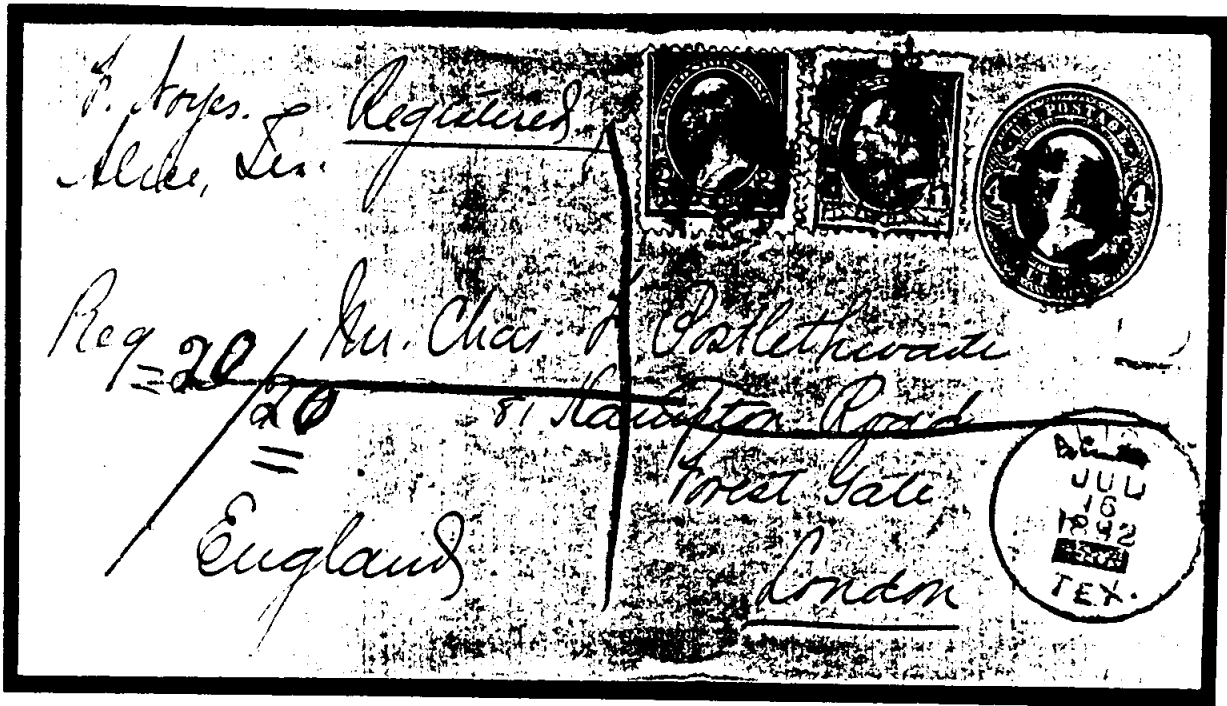 F. Noyes.
Alice, Tex.
Registered
2 2
U.S. POSTAGE
4 4
Reg 20/20
Mr. Chas F Postlethwaite
81. Hampton Road
Forest Gate
London
England
Alice
JUL
16
1892
TEX.